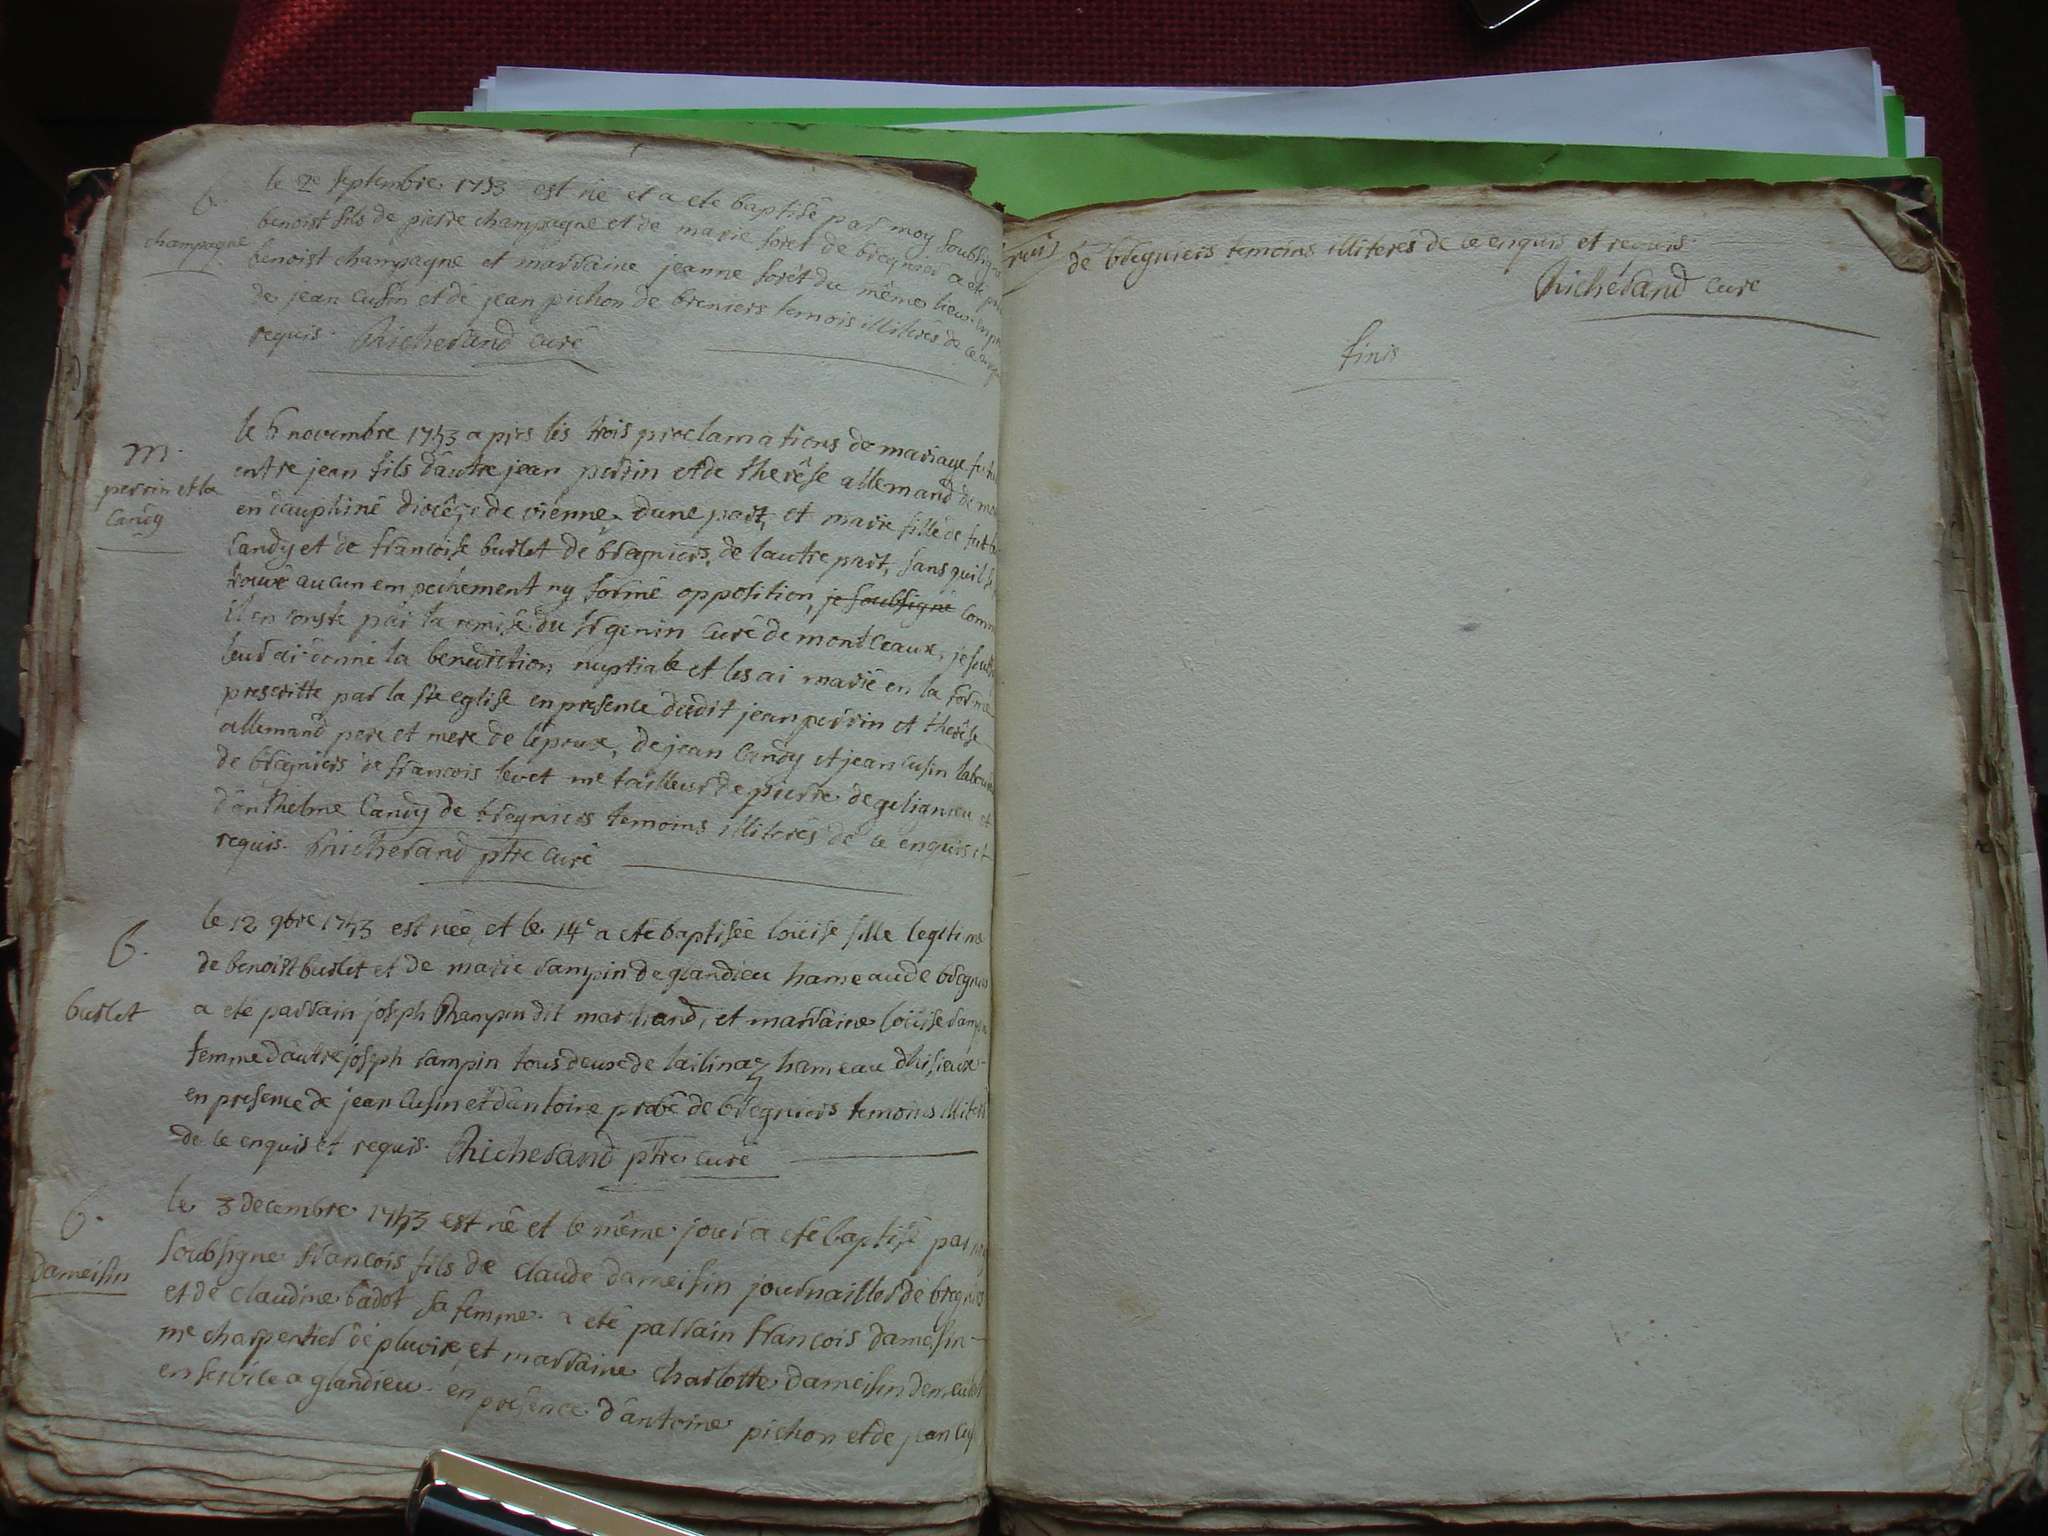 b.
champagne
le 2e septembre 1753 est né et a eté baptisé par moy soubsigné
benoist fils de pierre champagne et de marie foret de bregnier a eté
benoist champagne et marraine jeanne forêt du même lieu en
de jean cusin et de jean pichon de breniers temois illiteres de ce
requis. Richerand curé
m.
perrin et la
candy
le 6 novembre 1753 apres les trois proclamations de mariage
entre jean fils d'autre jean perrin et de therèse allemand de
en dauphiné diocèse de vienne d'une part, et marie fille de
candy et de francoise burlet de bregniers, de lautre part, sans quil
trouvé aucun empechement ny formé opposition, je soubsigné
il en conste par la remise du sr genin curé de montceaux, je
leur ai donné la benediction nuptiale et les ai marié en la forme
prescritte par la ste eglise en presence dudit jean perrin et therèse
allemand pere et mere de lepoux, de jean candy et jean cusin
de bregniers de francois levet me tailleur de pierre de gelignieu et
d'anthelme candy de bregniers temoins illiterés de ce enquis et
requis. Richerand ptre curé
b.
burlet
le 12 9bre 1753 est née, et le 14e a eté baptisée loüise fille legitime
de benoist burlet et de marie rampin de glandieu hameau de
a eté parrain joseph Rampin dit marchand, et marraine loüise
femme d'autre joseph rampin tous deux de lailinaz hameau
en presence de jean cusin et d'antoine probé de bregniers temoins
de ce enquis et requis. Richerand ptre curé
b.
dameisin
le 3 decembre 1753 est né et le même jour a eté baptisé par
soubsigne francois fils de claude dameisin journaillier de
et de claudine badot sa femme. a eté parrain francois
me charpentier de pluvire, et marraine charlotte dameisin
en service a glandieu. en présence d'antoine pichon et de jean
de bregniers temoins illiterés de ce enquis et requis.
Richerand curé
finis